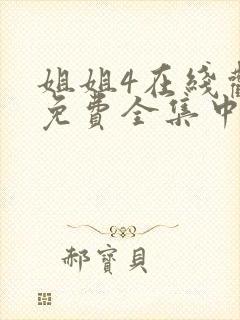 姐姐4在綫
免費全集中
郝寶貝